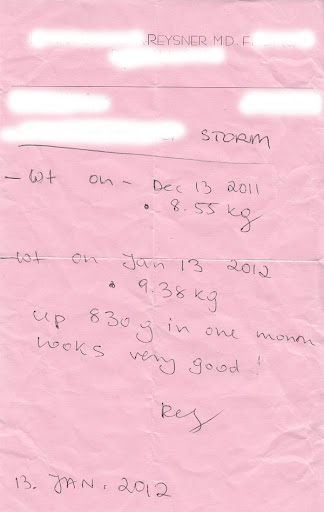 REYSNER M.D. F.
STORM
– Wt on – Dec 13 2011
• 8.55 kg
– Wt on Jan 13 2012
• 9.38 kg
up 830 g in one month
looks very good!
Rey
13. JAN. 2012